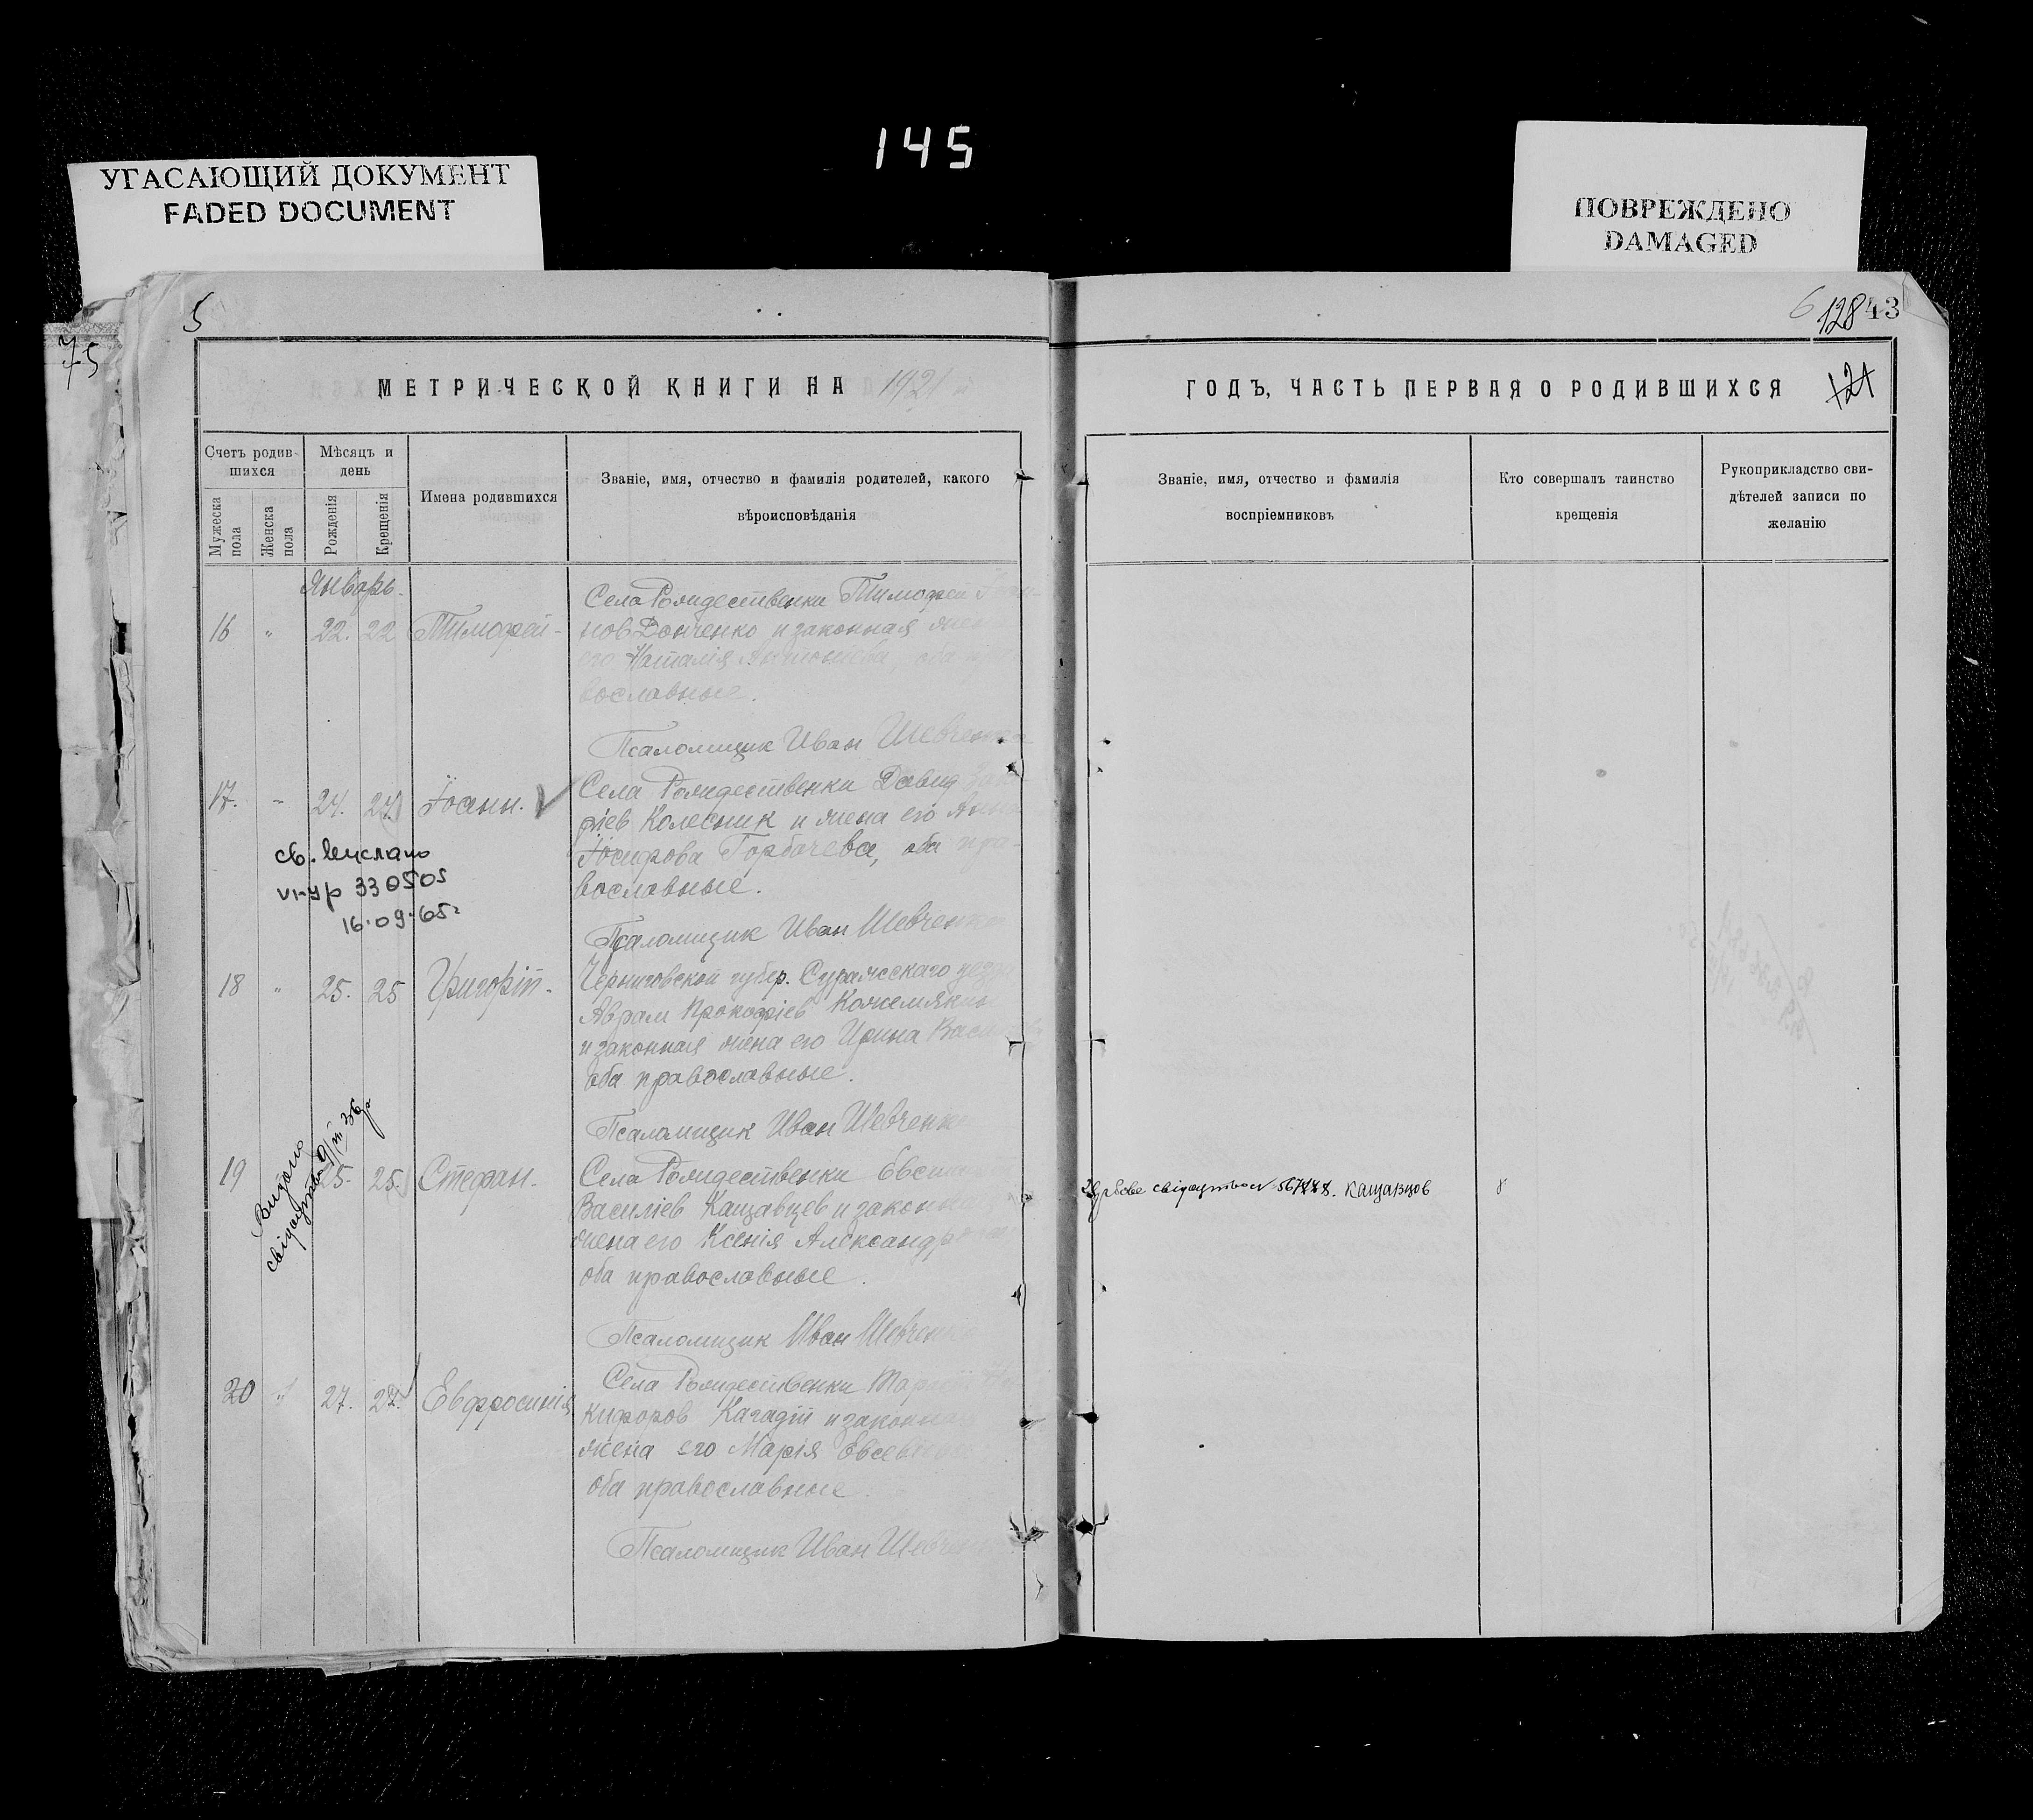 145
УГАСАЮЩИЙ ДОКУМЕНТ
FADED DOCUMENT
ПОВРЕЖДЕНО
DAMAGED
5
75
6 128 43
МЕТРИЧЕСКОЙ КНИГИ НА 1921
ГОДЪ, ЧАСТЬ ПЕРВАЯ О РОДИВШИХСЯ
121
Счетъ родив-
шихся
Мужеска
пола
Женска
пола
Мѣсяцъ и
день
Рожденія
Крещенія
Имена родившихся
Званіе, имя, отчество и фамилія родителей, какого
вѣроисповѣданія
Званіе, имя, отчество и фамилія
воспріемниковъ
Кто совершалъ таинство
крещенія
Рукоприкладство сви-
дѣтелей записи по
желанію
Январь.
16 " 22. 22 Тимофей-
Села Рождественки Тимофей
нов Донченко и законная
его Наталія оба
вославные.
Псаломщик Иван Шевченко
17. - 24. 24. Іоанн. V
Села Рождественки Давид
ріев Колесник и жена его Анна
Іосифова Горбачева, оба пра-
вославные.
Псаломщик Иван Шевченко
св. выслано
330505
16.09.65г
18 " 25. 25 Григорій-
Черниговской губер. Суражскаго уезда
Аврам Прокофіев Кожемякин
и законная жена его Ирина
оба православные.
Псаломщик Иван Шевченко
19 25. 25. Стефан-
Видано
свідоцтво
Села Рождественки
Василіев Кащавцев и законная
жена его Ксенія Александрова
оба православные.
Псаломщик Иван Шевченко
свідоцтво Кащавцов
20 " 27. 27. Евфросинія
Села Рождественки
кифоров Кагадій и законная
жена его Марія
оба православные.
Псаломщик Иван Шевченко